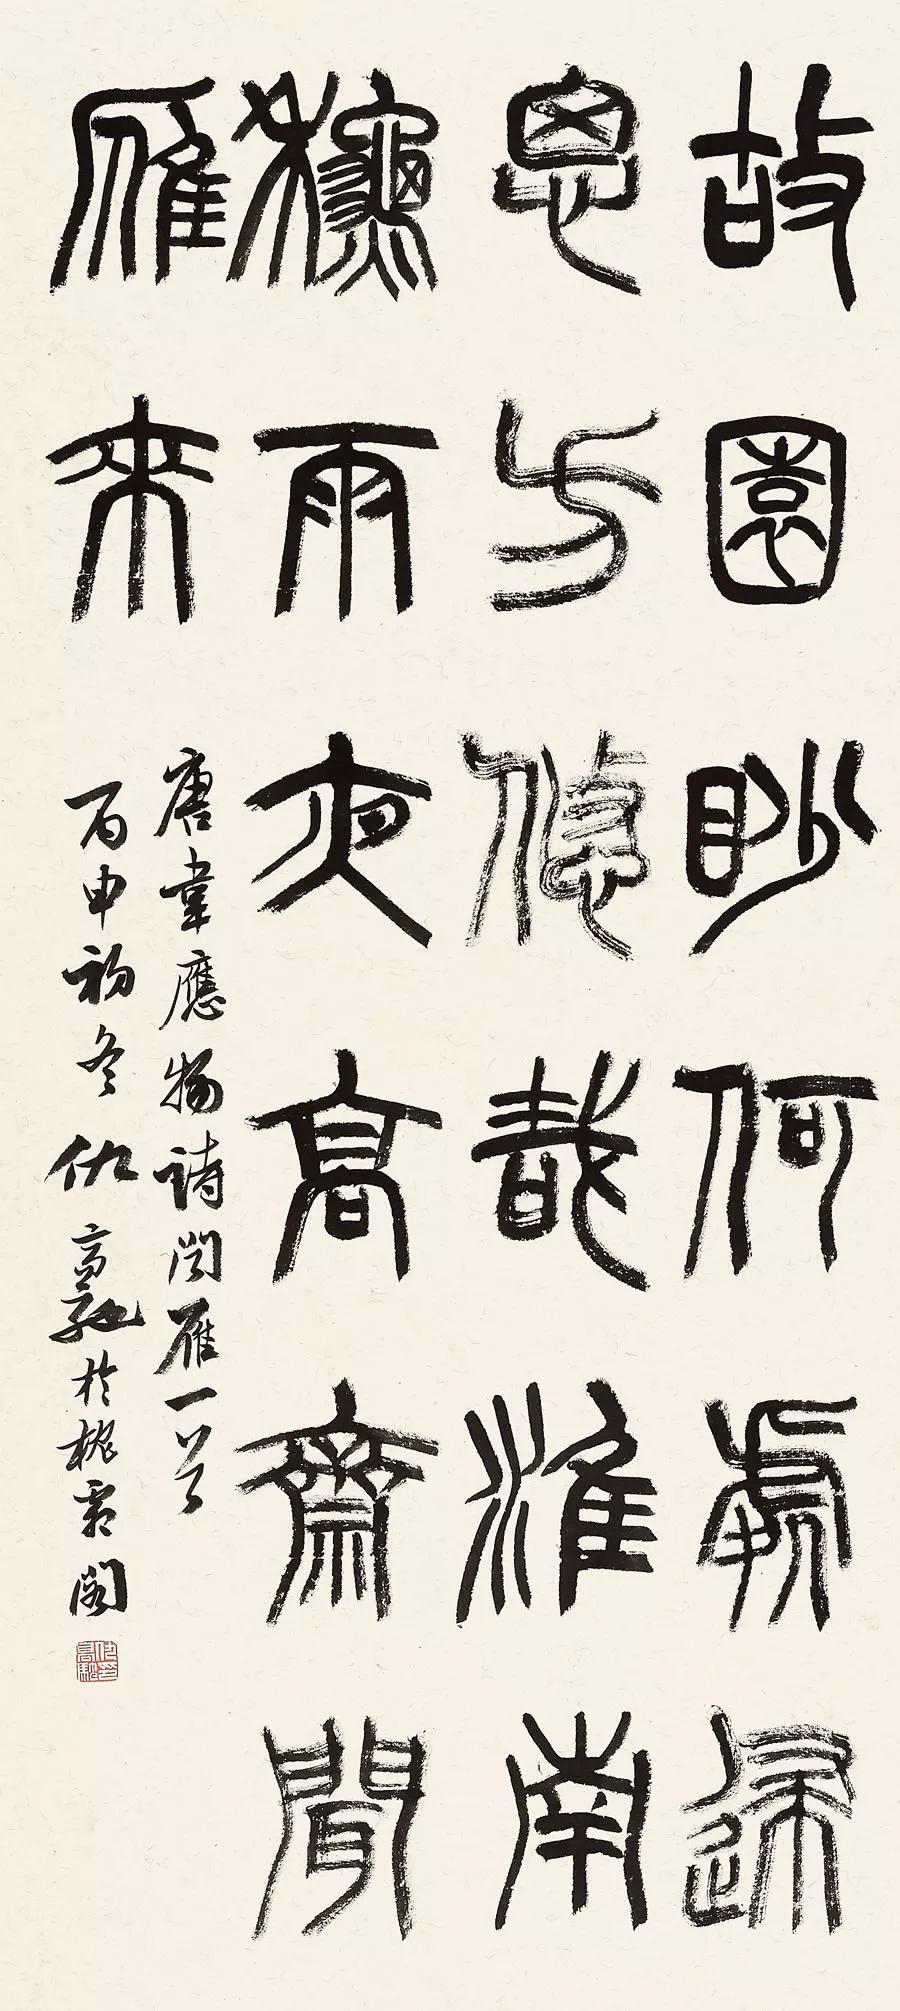 故園眇何處歸
思方悠哉淮南
秋雨夜高齋聞
雁來
唐韋應物詩聞雁一首
丙申初冬仇高馳於槐霜閣